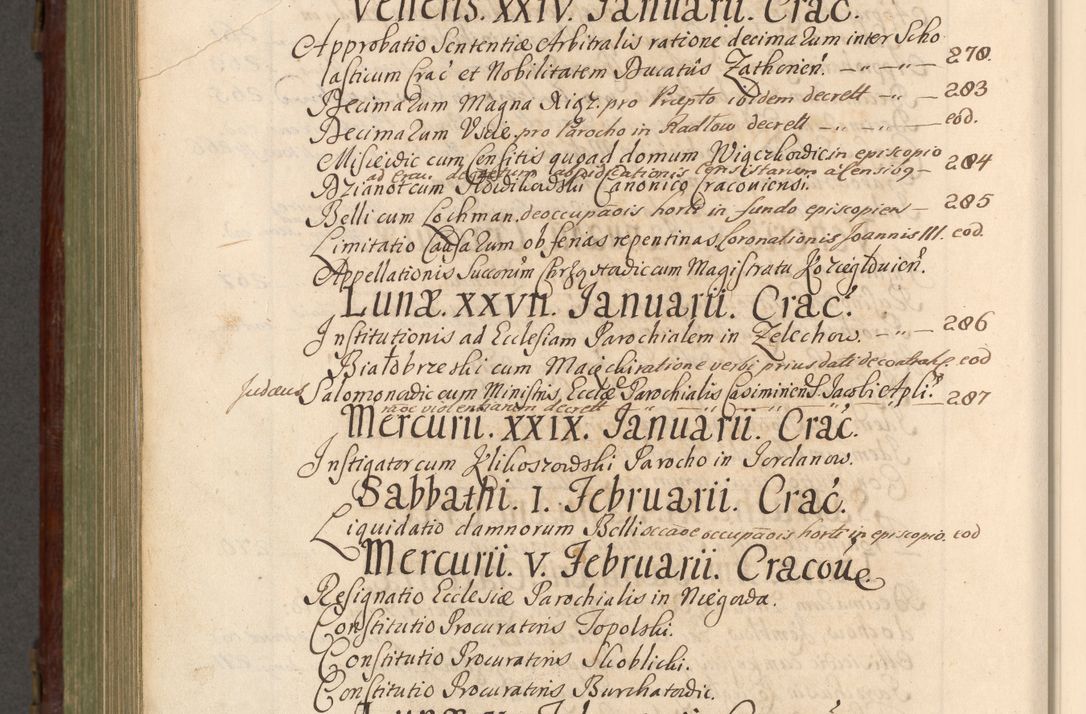 Veneris. XXIV. Januarii. Crac.
Approbatio Sententiæ Arbitralis ratione decimarum inter Scho
lasticum Crac et Nobilitatem Ducatûs Zathorien. 270.
Decimarum Magna pro ibidem decrett 283
Decimarum Uscie pro Parocho in Radłow decrett eod.
cum Censitis quoad domum in episcopio
284
Dzianot cum Canonico Cracoviensi.
Belli cum Lochman. de occupaõis horti in fundo episcopien 285
Limitatio Causarum ob ferias repentinas Coronationis Joannis III. eod.
Appellationis cum Magistratu
Lunæ. XXVII. Januarii. Crac.
Institutionis ad Ecclesiam Parochialem in Zelechow. 286
Białobrzeski cum ratione verbi prius dati de contrah. eod
Judæus Salomonowic cum Ministris Ecclæ Parochialis Casimirien S. Jacobi Apli. 287
raõe violentiarum decrett
Mercurii. XXIX. Januarii. Crac.
Instigator cum Parocho in Jordanow.
Sabbathi. I. Februarii. Crac.
Liquidatio damnorum Belli occaõe occupaõis horti in episcopio. eod
Mercurii. V. Februarii. Cracoviæ
Resignatio Ecclesiæ Parochialis in Niegowa.
Constitutio Procuratoris Topolski.
Constitutio Procuratoris Skoblicki.
Constitutio Procuratoris Burchatowic.